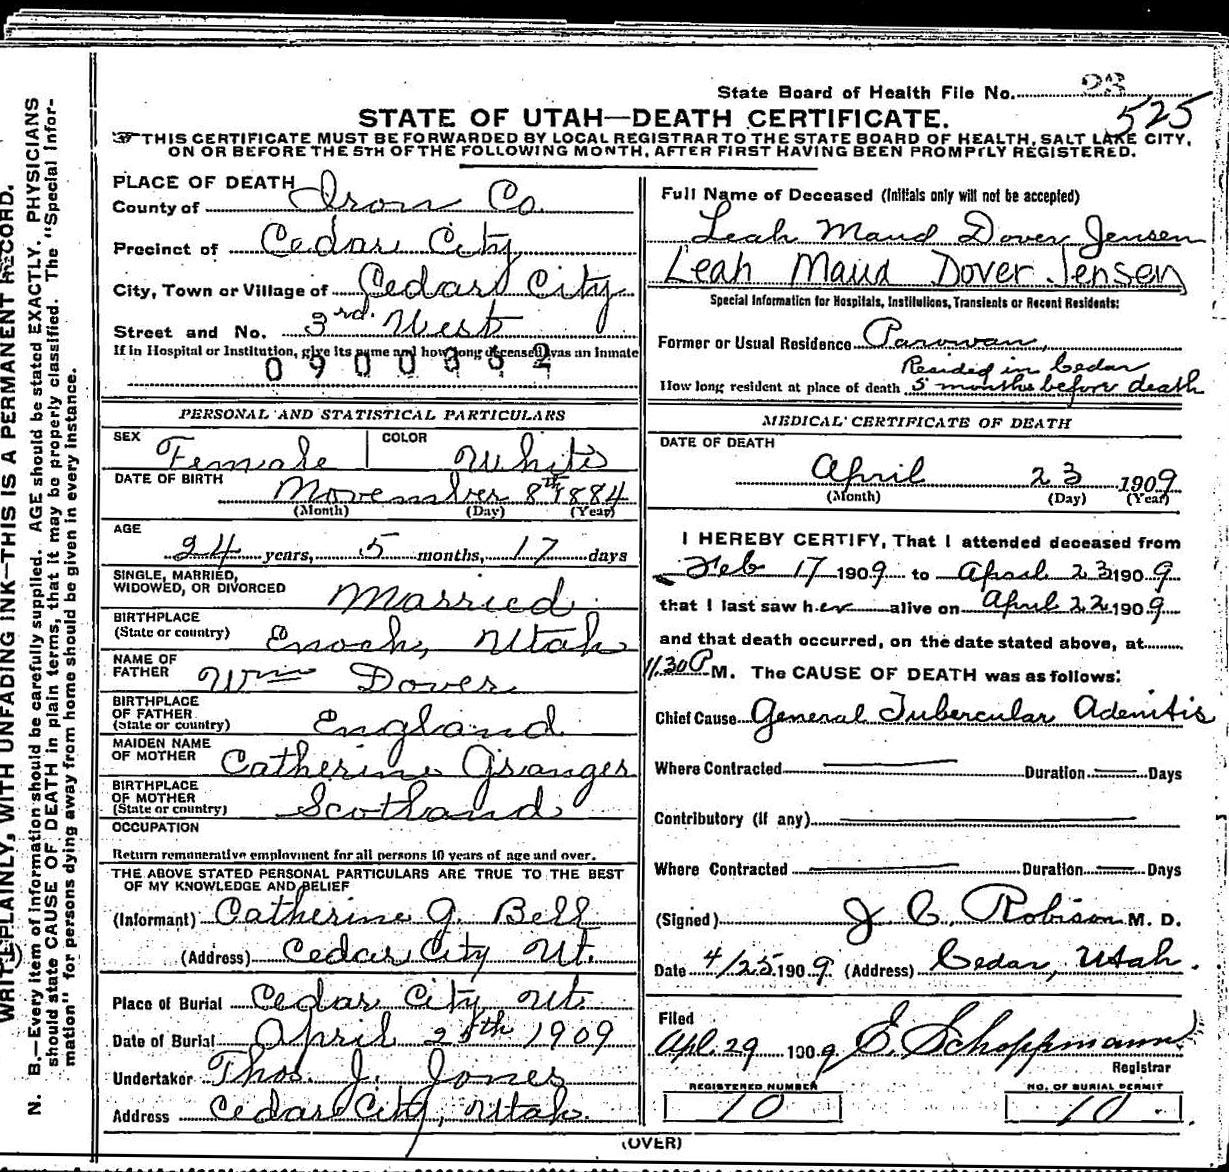 WRITE PLAINLY, WITH UNFADING INK—THIS IS A PERMANENT RECORD.
N. B.—Every item of information should be carefully supplied. AGE should be stated EXACTLY. PHYSICIANS
should state CAUSE OF DEATH in plain terms, that it may be properly classified. The "Special Infor-
mation" for persons dying away from home should be given in every instance.
State Board of Health File No. 23
525
STATE OF UTAH—DEATH CERTIFICATE.
THIS CERTIFICATE MUST BE FORWARDED BY LOCAL REGISTRAR TO THE STATE BOARD OF HEALTH, SALT LAKE CITY,
ON OR BEFORE THE 5TH OF THE FOLLOWING MONTH, AFTER FIRST HAVING BEEN PROMPTLY REGISTERED.
PLACE OF DEATH
County of Iron Co.
Precinct of Cedar City
City, Town or Village of Cedar City
Street and No. 3rd West
If in Hospital or Institution, give its name and how long deceased was an inmate
PERSONAL AND STATISTICAL PARTICULARS
SEX Female COLOR White
DATE OF BIRTH November 8th 1884
(Month) (Day) (Year)
AGE
24 years, 5 months, 17 days
SINGLE, MARRIED,
WIDOWED, OR DIVORCED Married
BIRTHPLACE
(State or country) Enoch, Utah
NAME OF
FATHER Wm Dover
BIRTHPLACE
OF FATHER
(State or country) England
MAIDEN NAME
OF MOTHER Catherine Granger
BIRTHPLACE
OF MOTHER
(State or country) Scotland
OCCUPATION
Return remunerative employment for all persons 10 years of age and over.
THE ABOVE STATED PERSONAL PARTICULARS ARE TRUE TO THE BEST
OF MY KNOWLEDGE AND BELIEF
(Informant) Catherine G. Bell
(Address) Cedar City Ut.
Place of Burial Cedar City Ut.
Date of Burial April 25th 1909
Undertaker Thos. J. Jones
Address Cedar City, Utah.
Full Name of Deceased (Initials only will not be accepted)
Leah Maud Dover Jensen
Leah Maud Dover Jensen
Special Information for Hospitals, Institutions, Transients or Recent Residents:
Former or Usual Residence Parowan,
Resided in Cedar
How long resident at place of death 5 months before death
MEDICAL CERTIFICATE OF DEATH
DATE OF DEATH
April 23 1909
(Month) (Day) (Year)
I HEREBY CERTIFY, That I attended deceased from
Feb 17 1909 to April 23 1909
that I last saw her alive on April 22 1909
and that death occurred, on the date stated above, at
11.30 P M. The CAUSE OF DEATH was as follows:
Chief Cause General Tubercular Adenitis
Where Contracted Duration Days
Contributory (if any)
Where Contracted Duration Days
(Signed) J. C. Robison M. D.
Date 4/25 1909. (Address) Cedar, Utah.
Filed
Apl. 29 1909 E. Schoppmann
Registrar
REGISTERED NUMBER NO. OF BURIAL PERMIT
10 10
(OVER)